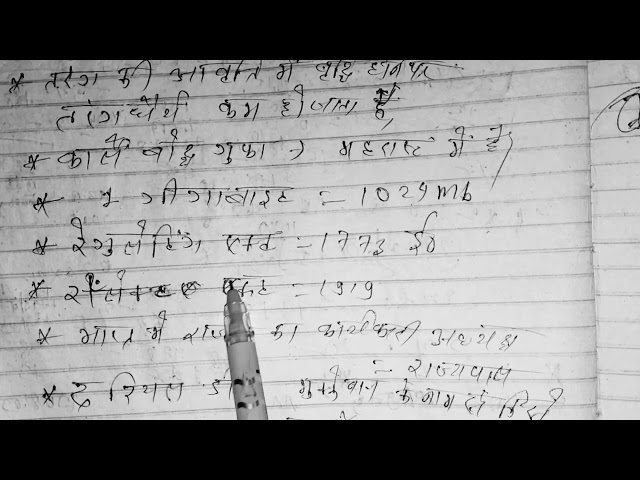 * तरंग की आवृति में वृद्धि होने पर
तंरगधैर्य कम हो जाता है
* कार्ले बौद्ध गुफा → महराष्ट में है
* 1 गीगाबाइट = 1024 mb
* रेगुलेटिंग एक्ट = 1773 ई०
* रौलेट एक्ट = 1919
* भारत में राज्य का कार्यकारी अध्यक्ष
= राज्यपाल
* द रियल डी के नाम से